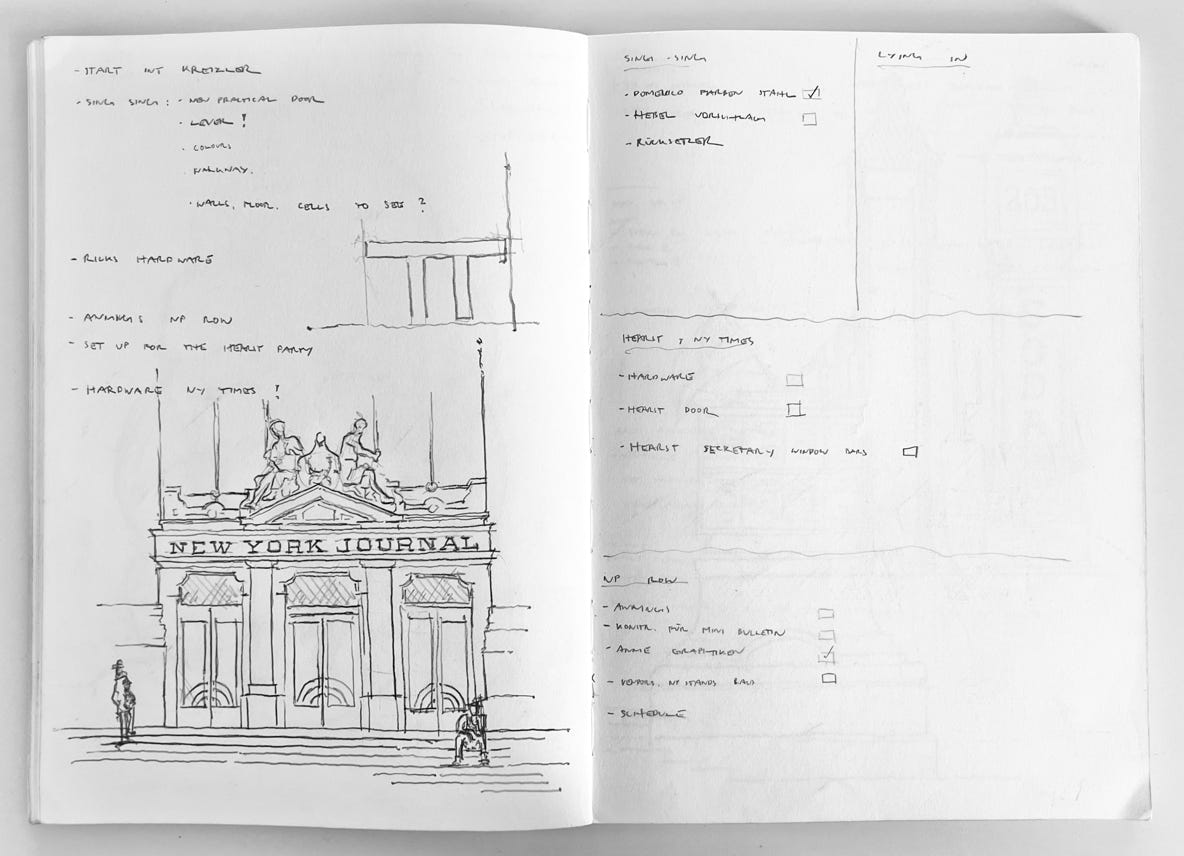 - START INT KREIZLER
- SING SING : - NEW PRACTICAL DOOR
· LEVER !
· COLOURS
· WALKWAY.
· WALLS, FLOOR, CELLS TO SET ?
- RICKS HARDWARE
- AWNINGS NP ROW
- SET UP FOR THE HEARST PARTY
- HARDWARE NY TIMES !
NEW YORK JOURNAL
SING - SING
- DOMENICO FARBEN STAHL
- HEBEL VORSCHLAG
- RÜCKSETZER
LYING IN
HEARST & NY TIMES
- HARDWARE
- HEARST DOOR
- HEARST SECRETARY WINDOW BARS
NP ROW
- AWNINGS
- KONSTR. FÜR MINI BULLETIN
- ANNIE GRAPHIKEN
- VENDORS, NY STANDS
- SCHEDULE